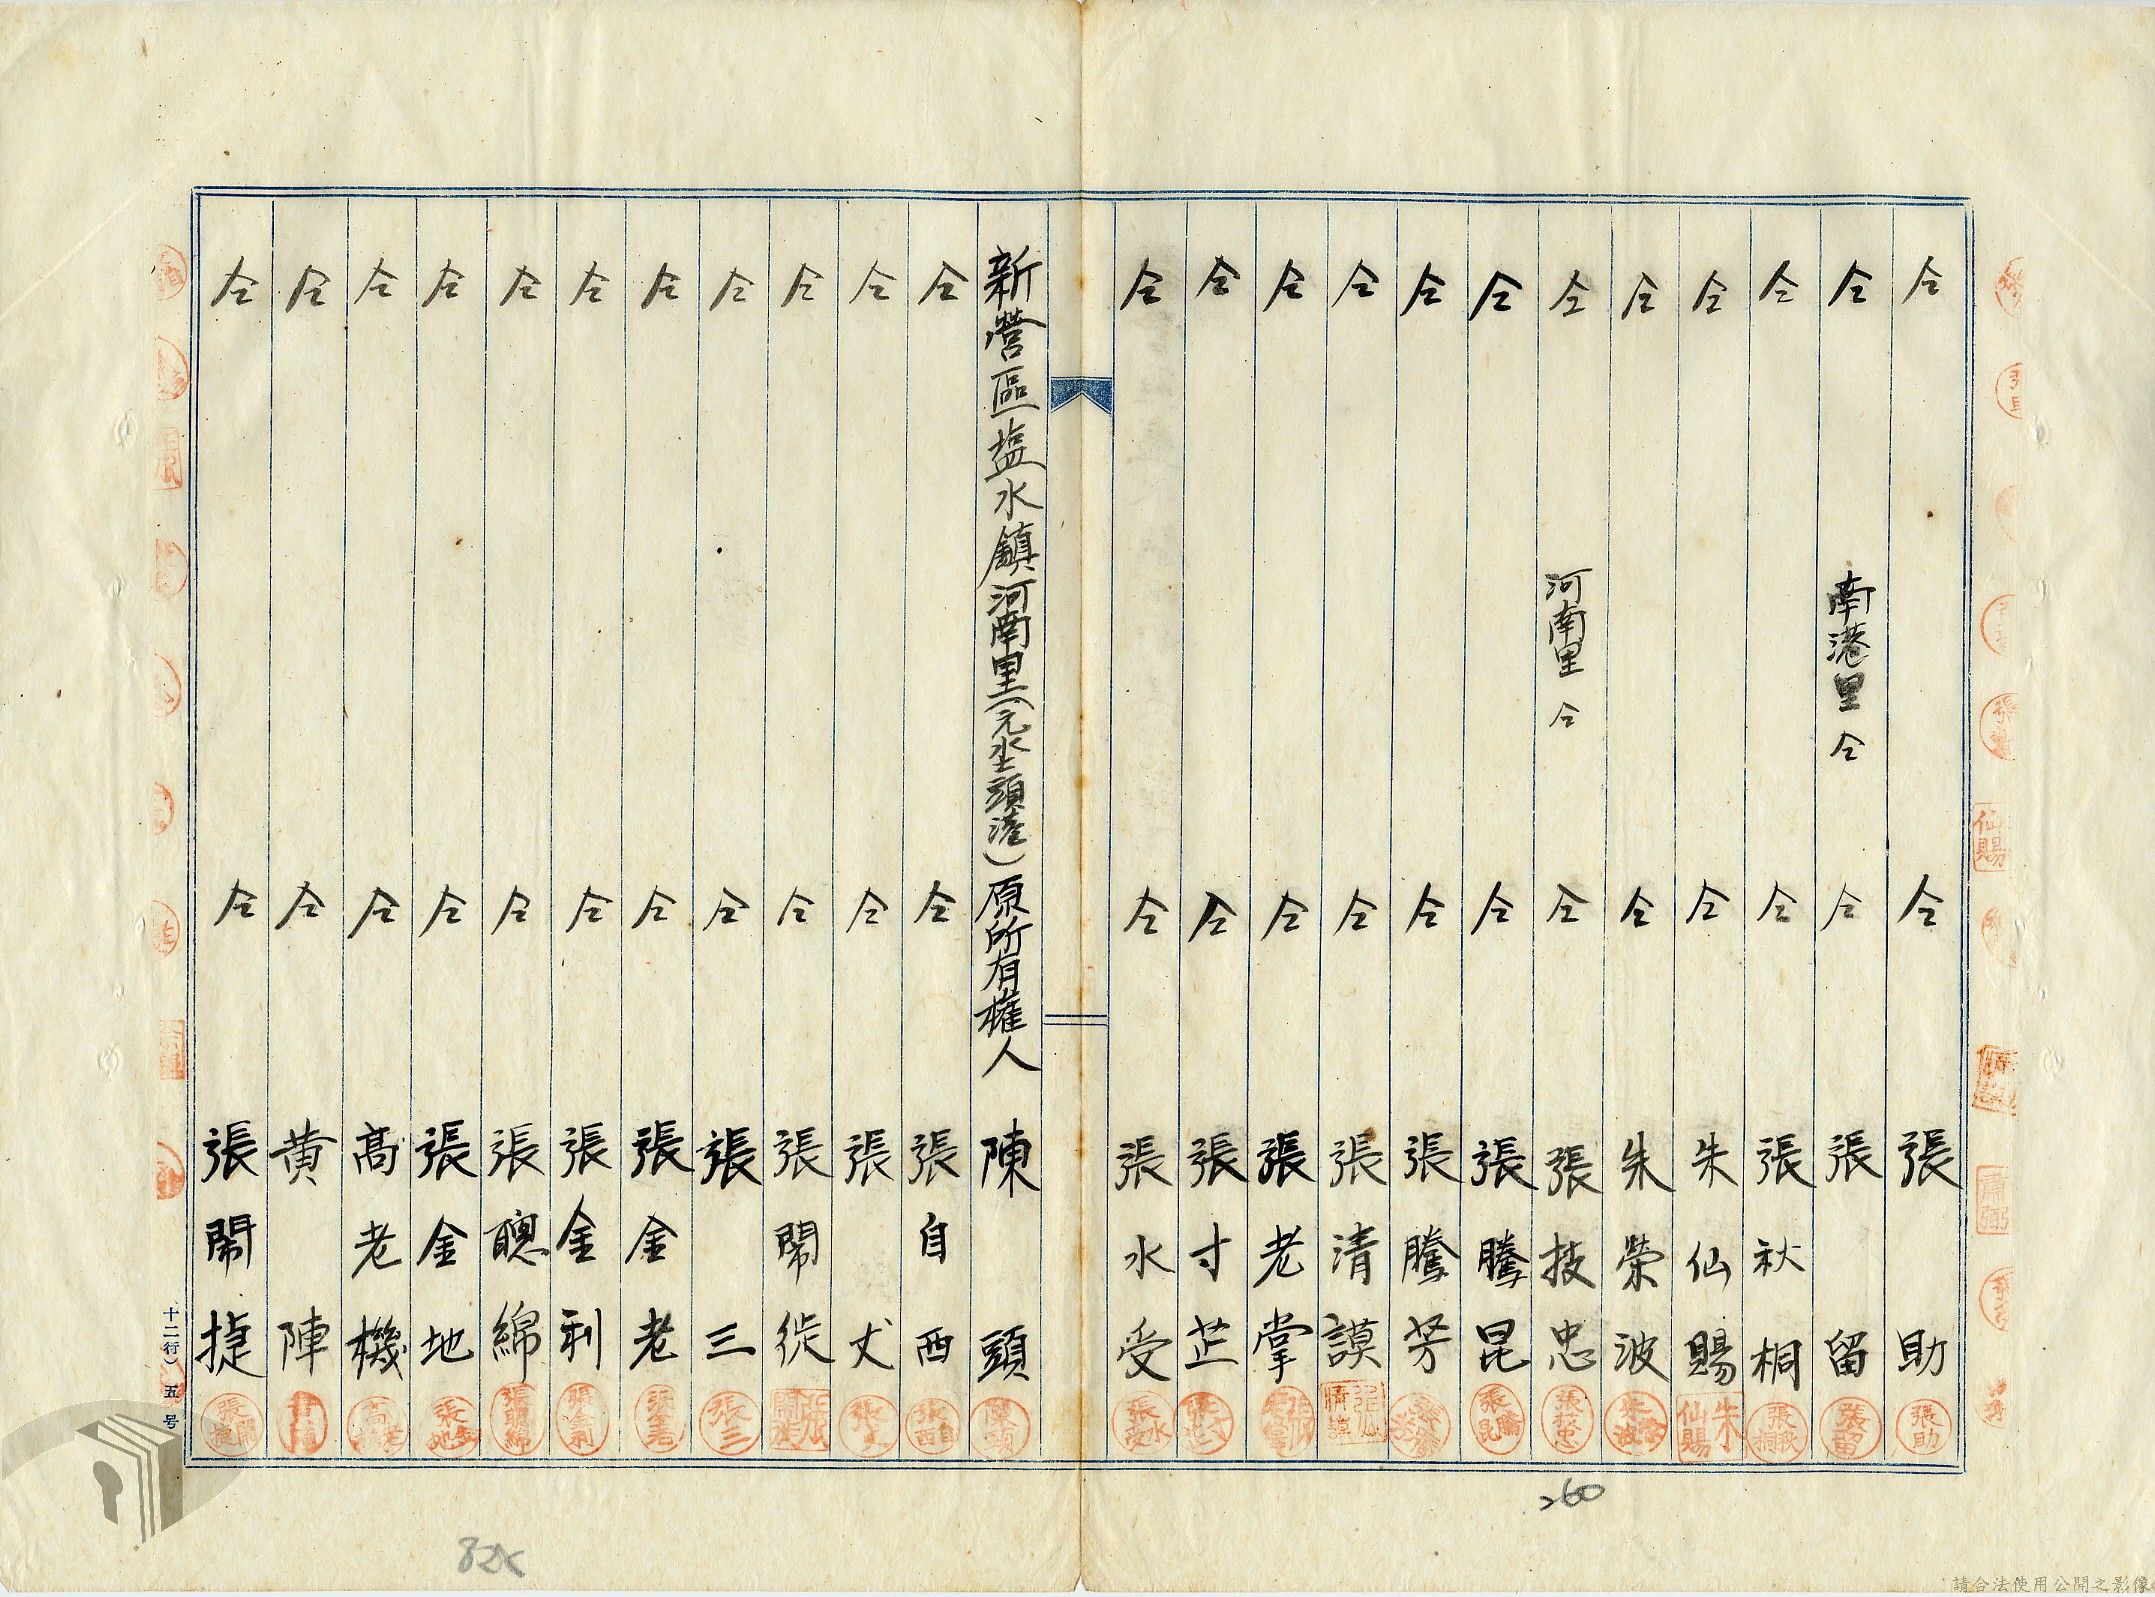 仝 仝 張助
仝 南港里仝 仝 張留
仝 仝 張秋桐
仝 仝 朱仙賜
仝 仝 朱榮波
仝 河南里仝 仝 張技忠
仝 仝 張騰昆
仝 仝 張騰芳
仝 仝 張清謨
仝 仝 張老掌
仝 仝 張寸芷
仝 仝 張水受
新營區塩水鎮河南里(元坔頭港)原所有權人 陳頭
仝 仝 張自西
仝 仝 張丈
仝 仝 張鬧徙
仝 仝 張三
仝 仝 張金老
仝 仝 張金利
仝 仝 張聰綿
仝 仝 張金地
仝 仝 高老機
仝 仝 黄陣
仝 仝 張鬧捷
十二行)五号
260
請合法使用公開之影像